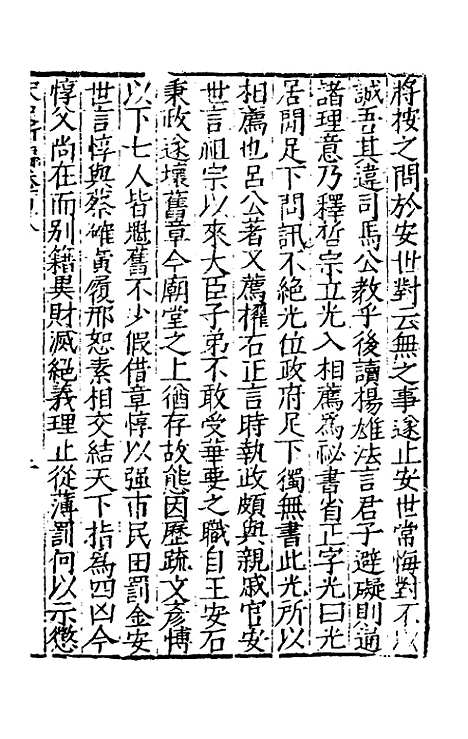 將按之問於安世對云無之事遂止安世常悔對不以
誠吾其違司馬公教乎後讀楊雄法言君子避礙則通
諸理意乃釋哲宗立光入相薦為祕書省正字光曰光
居閒足下問訊不絶光位政府足下獨無書此光所以
相薦也呂公著又薦擢右正言時執政頗與親戚官安
世言祖宗以來大臣子弟不敢受華要之職自王安石
秉政遂壞舊章今廟堂之上猶存故態因歷疏文彦博
以下七人皆魁舊不少假借章惇以强市民田罰金安
世言惇與蔡確黄履邢恕素相交結天下指為四凶今
惇父尚在而别籍異財滅絶義理止從薄罰何以示懲